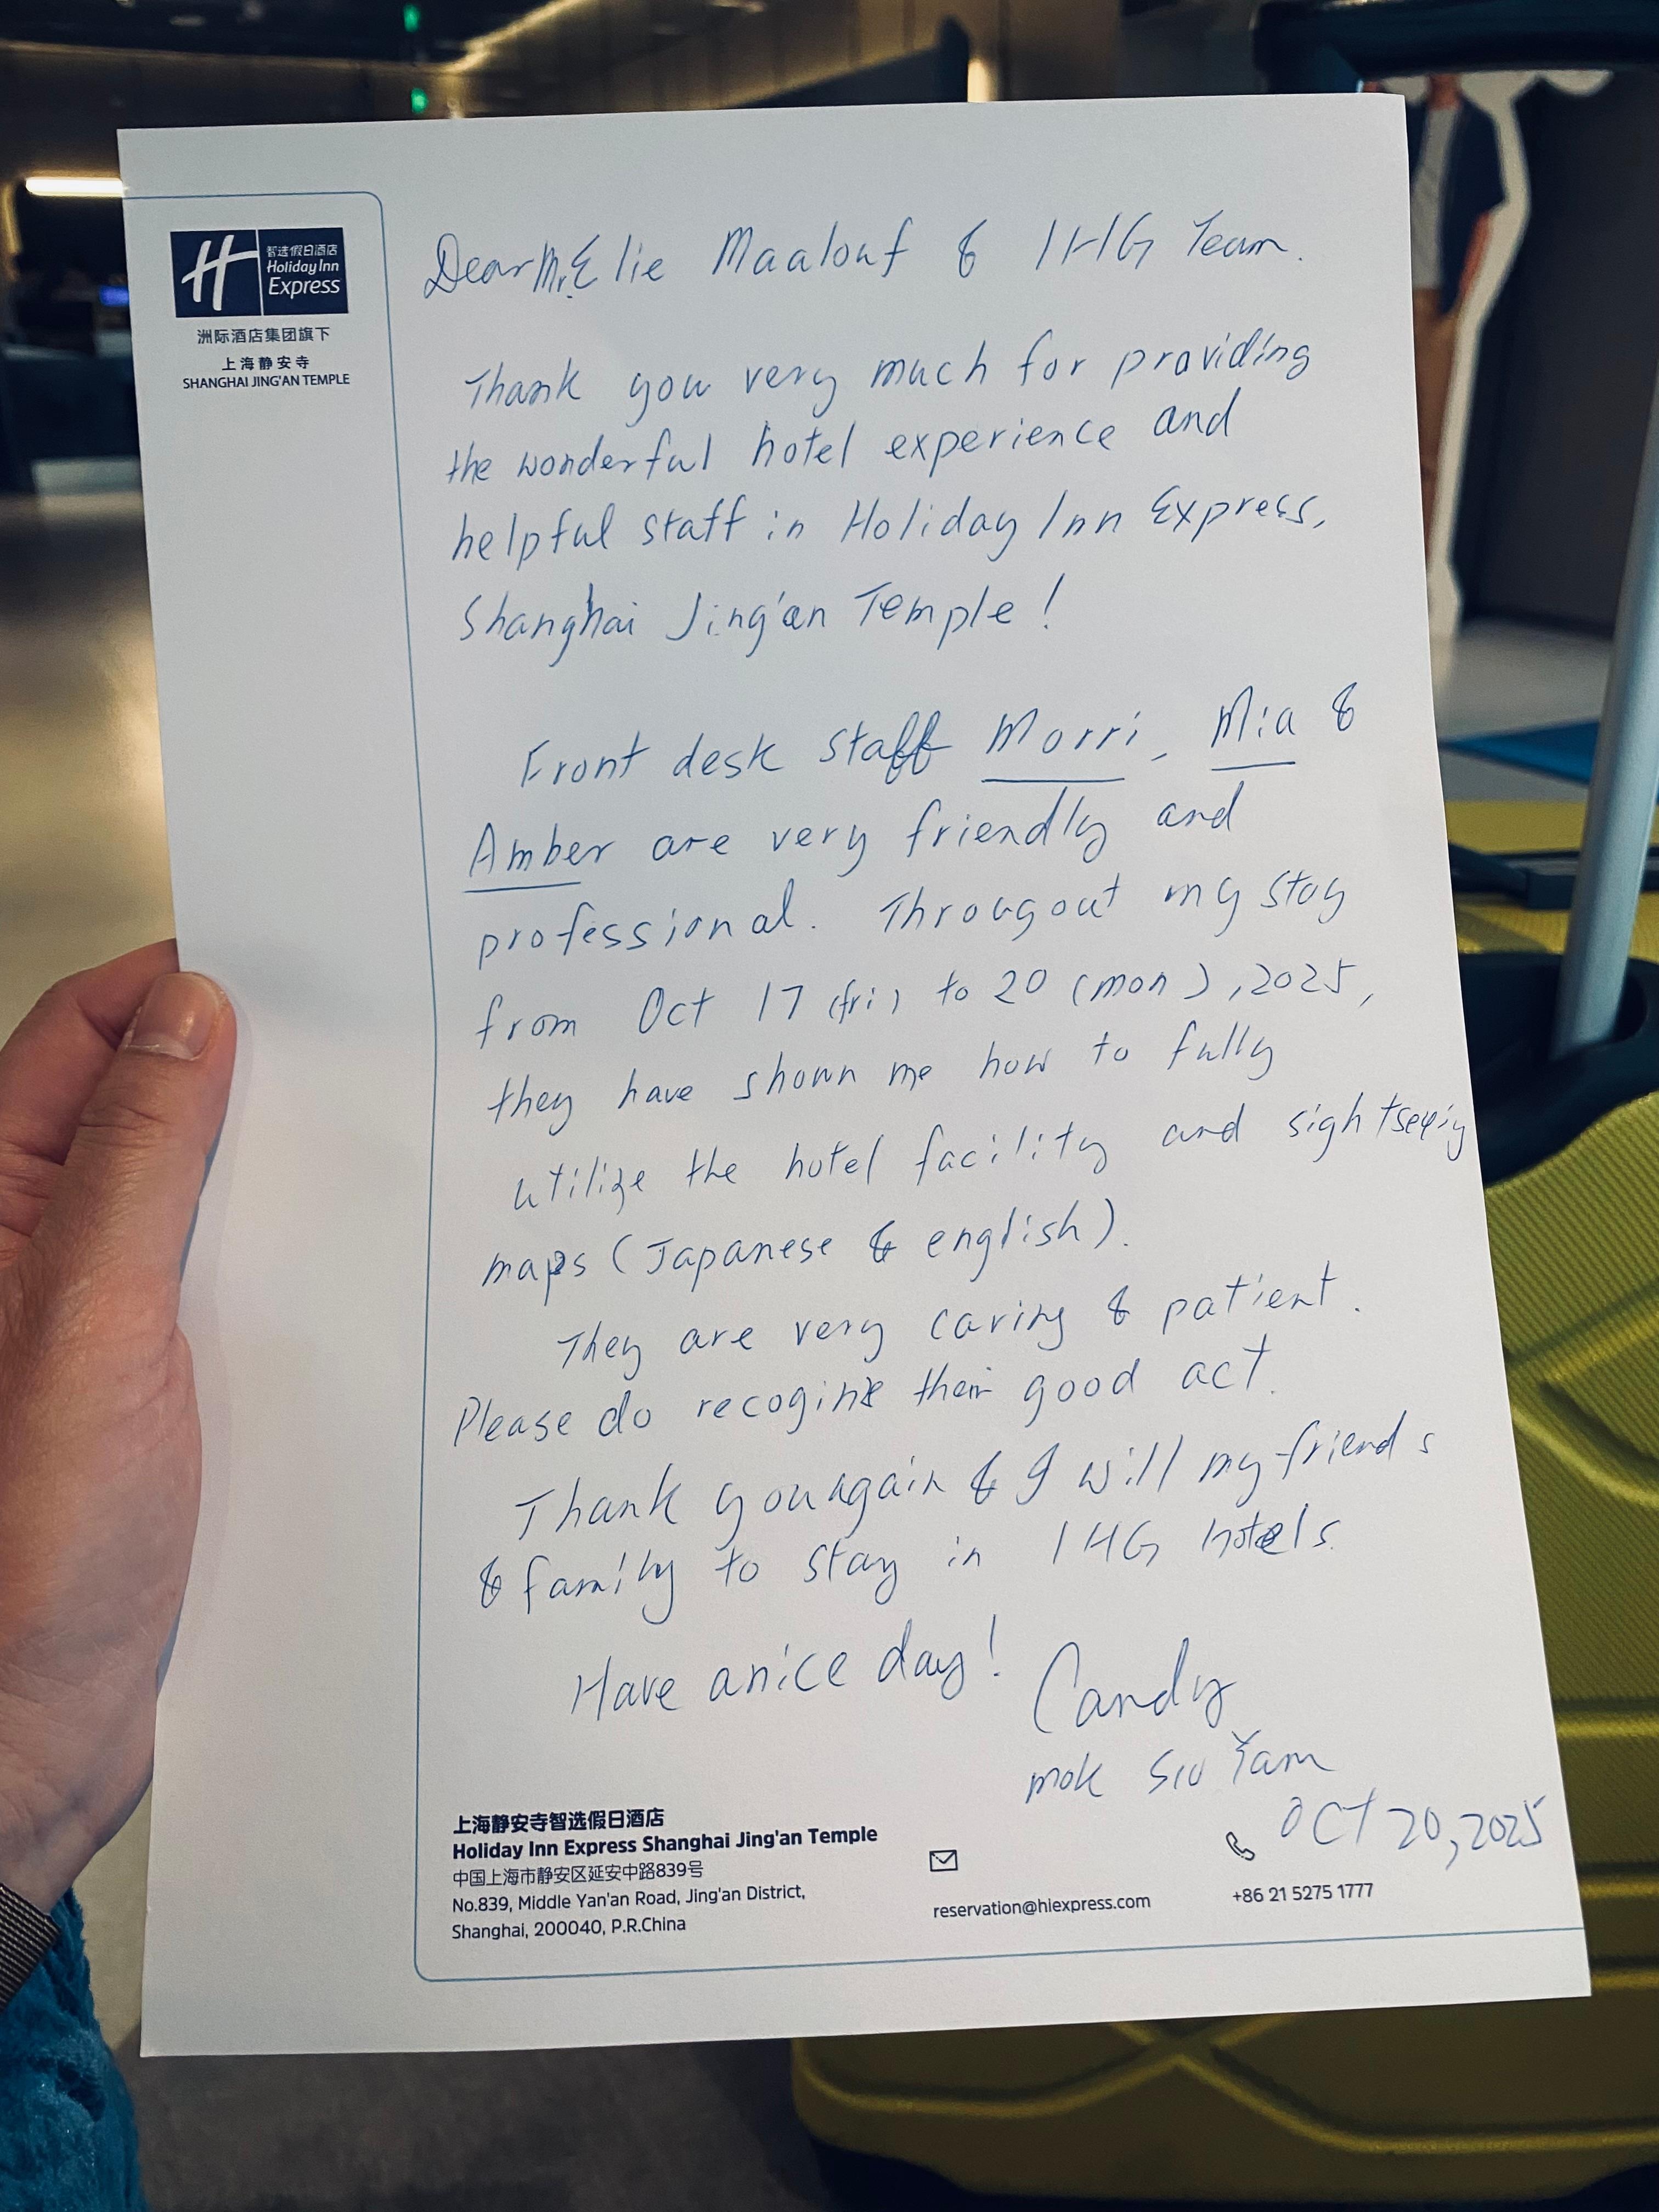 智选假日酒店
Holiday Inn
Express
洲际酒店集团旗下
上海静安寺
SHANGHAI JING'AN TEMPLE
Dear Mr. Elie Maalouf & IHG Team.
Thank you very much for providing
the wonderful hotel experience and
helpful staff in Holiday Inn Express,
Shanghai Jing'an Temple!
Front desk staff Morri, Mia &
Amber are very friendly and
professional. Througout my stay
from Oct 17 (fri) to 20 (mon), 2025,
they have shown me how to fully
utilize the hotel facility and sightseeing
maps (Japanese & english).
They are very caring & patient.
Please do recogine their good act.
Thank you again & I will my friends
& family to stay in IHG hotels.
Have a nice day!
Candy
mok Siu Yam
OCT 20, 2025
上海静安寺智选假日酒店
Holiday Inn Express Shanghai Jing'an Temple
中国上海市静安区延安中路839号
No.839, Middle Yan'an Road, Jing'an District,
Shanghai, 200040, P.R.China
reservation@hiexpress.com
+86 21 5275 1777